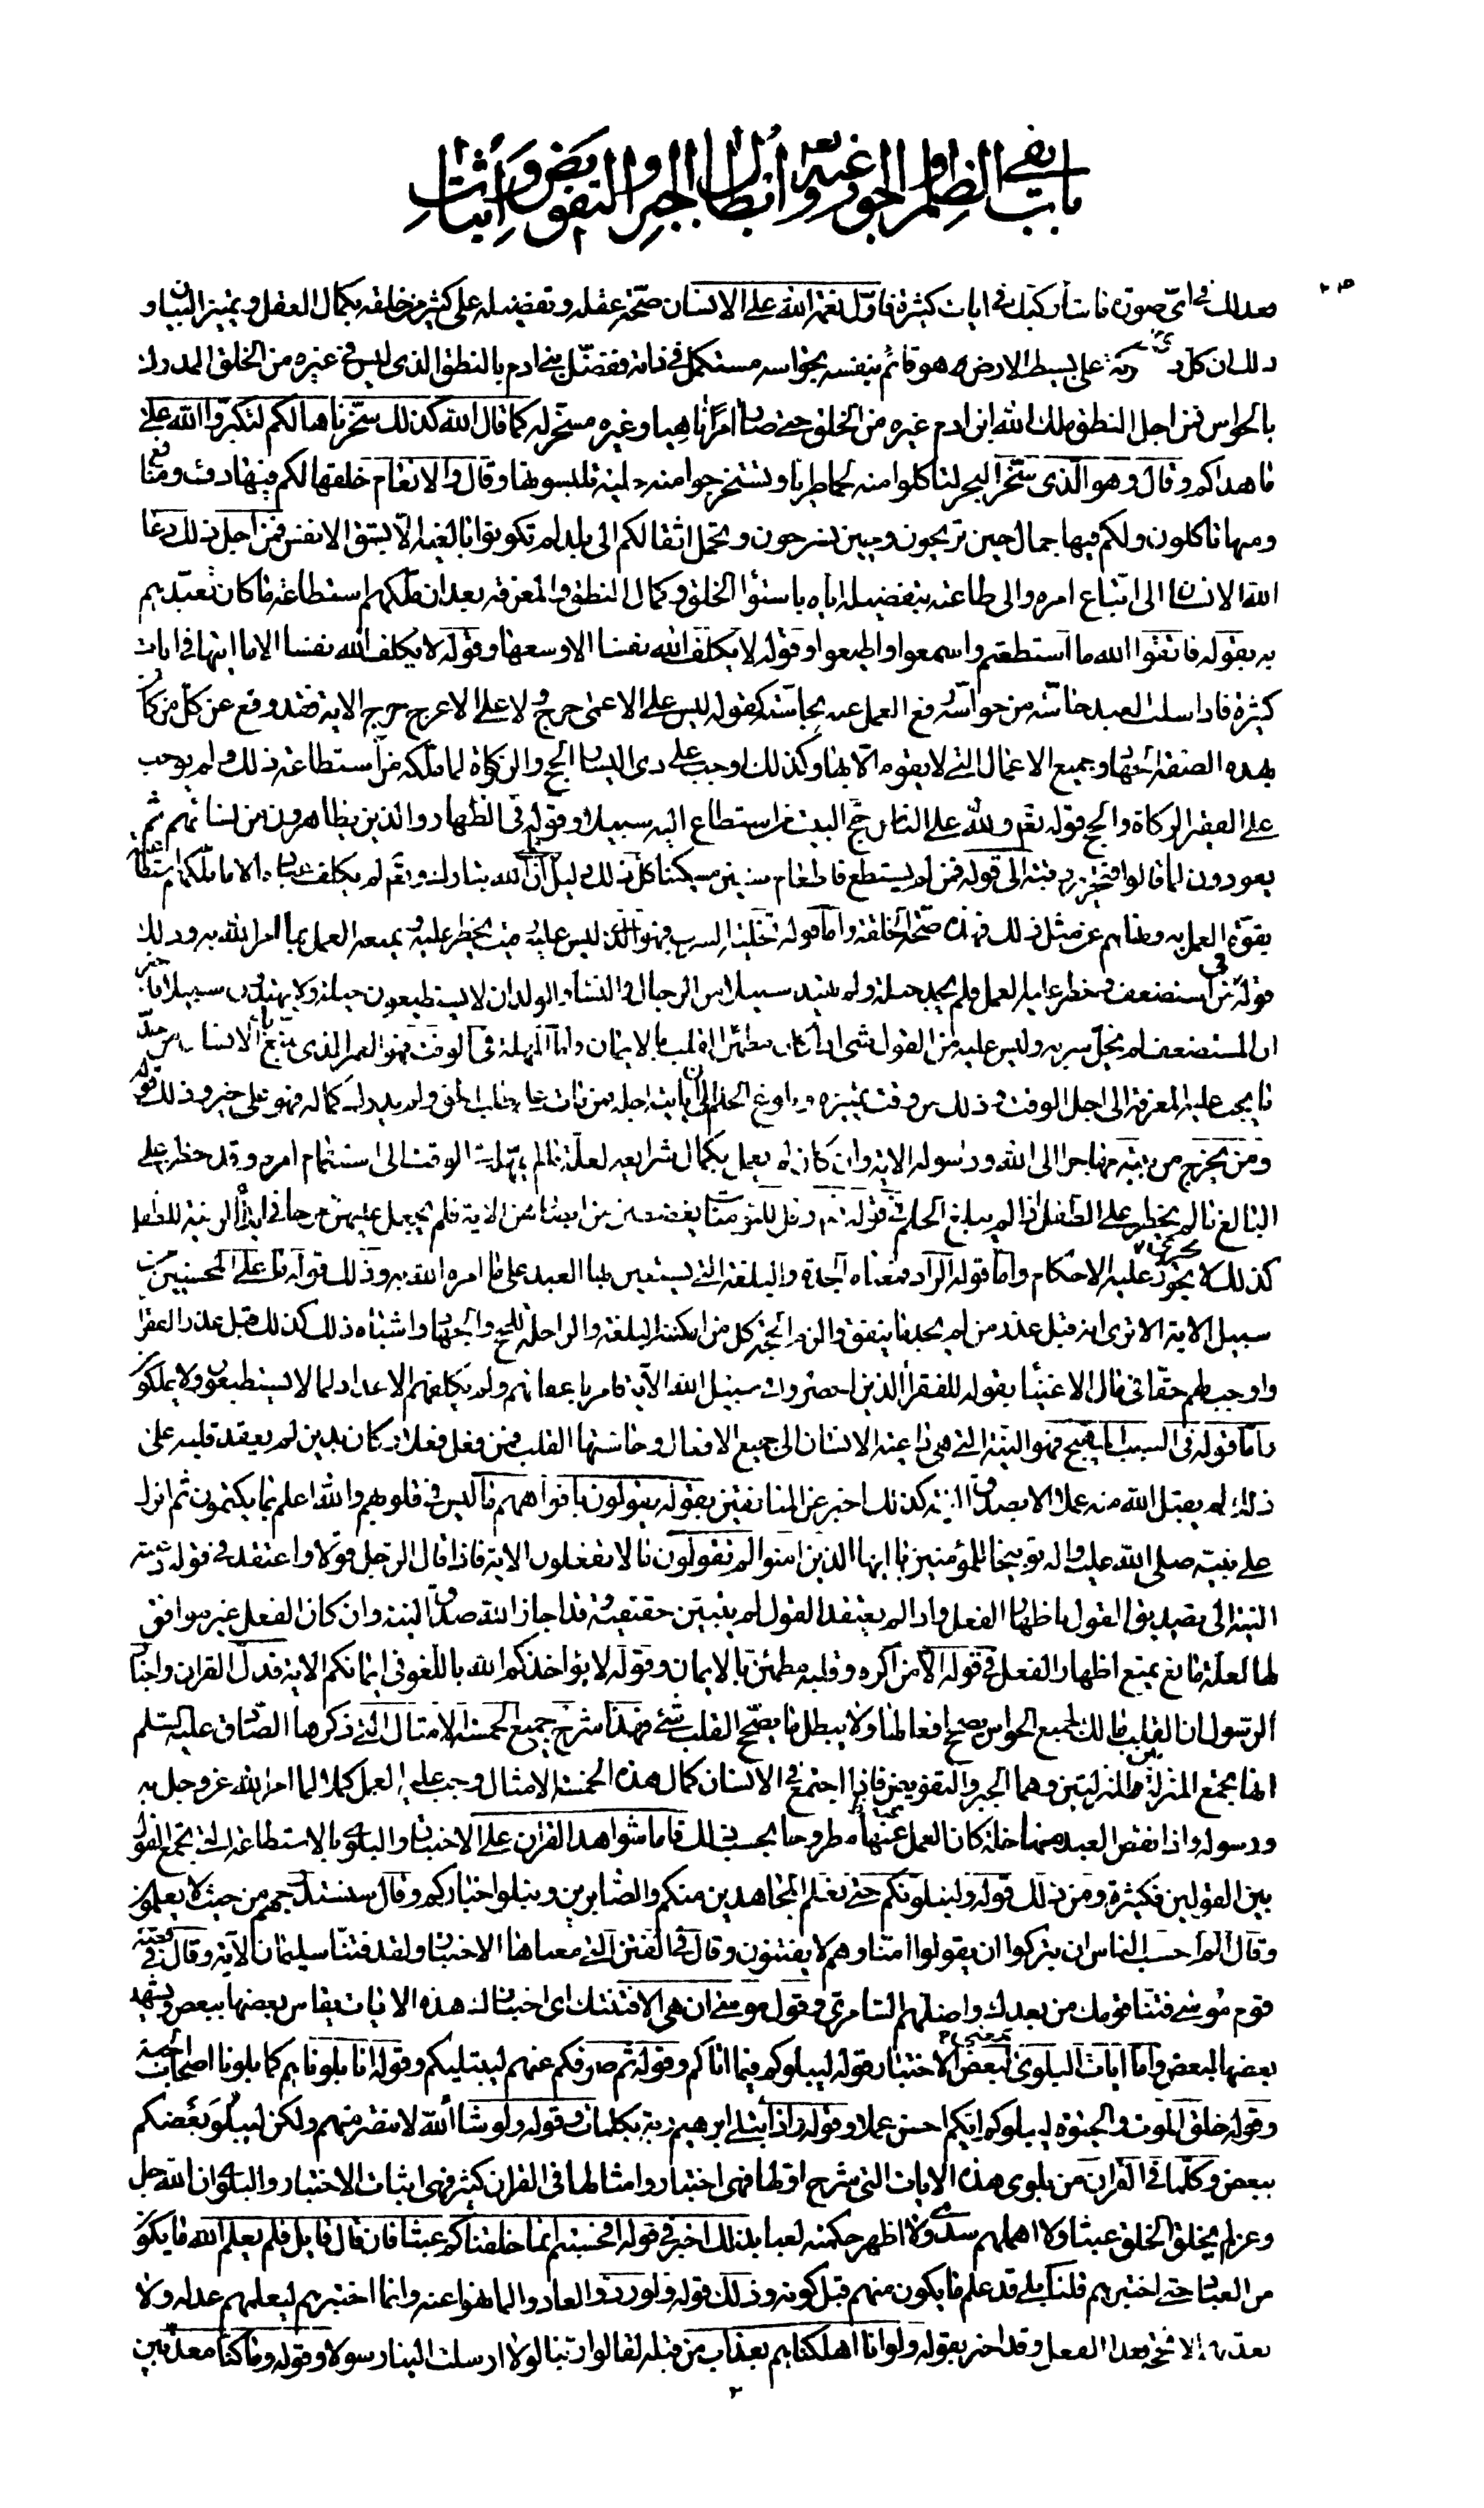 باب نفي الظلم والجور عنه تع وابطال الجبر والتفويض واثبات
فعدلك في اي صورة ما شاء ركبك في ايات كثيرة فاول نعمة الله على الانسان صحة عقله وتفضيله على كثير من خلقه بكمال العقل وتميز البيان و
ذلك ان كل ذي حركة على بسيط الارض هو قائم بنفسه بحواسه مستكمل في ذاته ففضل بني ادم بالنطق الذي ليس في غيره من الخلق المدرك
بالحواس فمن اجل النطق ملك الله ابن ادم غيره من الخلق حتى صار امرا ناهيا وغيره مسخر له كما قال الله كذلك سخرناها لكم لتكبروا الله على
ما هداكم وقال وهو الذي سخر البحر لتاكلوا منه لحما طريا وتستخرجوا منه حلية تلبسونها وقال والانعام خلقها لكم فيها دفء ومنافع
ومنها تاكلون ولكم فيها جمال حين تريحون وحين تسرحون وتحمل اثقالكم الى بلد لم تكونوا بالغيه الا بشق الانفس فمن اجل ذلك دعا
الله الانسان الى اتباع امره والى طاعته بتفضيله اياه باستواء الخلق وكمال النطق والمعرفة بعد ان ملكهم استطاعة ما كان تعبدهم
به بقوله فاتقوا الله ما استطعتم واسمعوا واطيعوا وقوله لا يكلف الله نفسا الا وسعها وقوله لا يكلف الله نفسا الا ما اتيها في ايات
كثيرة فاذا سلب العبد حاسة من حواسه رفع العمل عنه بحاسته كقوله ليس على الاعمى حرج ولا على الاعرج حرج الاية فقد رفع عن كل من كان
بهذه الصفة الجهاد وجميع الاعمال التي لا يقوم الا بها وكذلك اوجب على ذي اليسار الحج والزكاة لما ملكه من استطاعة ذلك ولم يوجب
على الفقير الزكاة والحج قوله تع ولله على الناس حج البيت من استطاع اليه سبيلا وقوله في الظهار والذين يظاهرون من نسائهم ثم
يعودون لما قالوا فتحرير رقبة الى قوله فمن لم يستطع فاطعام ستين مسكينا كل ذلك دليل على ان الله تبارك وتع لم يكلف عباده الا ما ملكهم استطاعته
بقوة العمل به ونهاهم عن مثل ذلك فهذه صحة الخلقة واما قوله تخلية السرب فهو الذي ليس عليه رقيب يحظر عليه ويمنعه العمل بما امر الله به وذلك
قوله فيمن استضعف وحظر عليه العمل فلم يجد حيلة ولم يهتد سبيلا من الرجال والنساء والولدان لا يستطيعون حيلة ولا يهتدون سبيلا فاخبر
ان المستضعف لم يخل سربه وليس عليه من القول شيء اذا كان مطمئن القلب بالايمان واما المهلة في الوقت فهو العمر الذي يمتع به الانسان من حد
ما يجب عليه المعرفة الى اجل الوقت وذلك من وقت تمييزه وبلوغ الحلم الى ان ياتيه اجله فمن مات على طلب الحق ولم يدرك كماله فهو على خير وذلك قوله
ومن يخرج من بيته مهاجرا الى الله ورسوله الاية وان كان لم يعمل بكمال شرايعه لعلة ما لم يمهله في الوقت الى استتمام امره وقد حظر على
البالغ ما لم يحظر على الطفل اذا لم يبلغ الحلم في قوله تع وقل للمؤمنات يغضضن من ابصارهن الاية فلم يجعل عليهن حرجا في ابداء الزينة للطفل
كذلك لا تجري عليه الاحكام واما قوله الزاد فمعناه الجدة والبلغة التي يستعين بها العبد على ما امره الله به وذلك قوله ما على المحسنين من
سبيل الاية الا ترى انه قبل عذر من لم يجد ما ينفق والزم الحجة كل من امكنته البلغة والراحلة للحج والجهاد واشباه ذلك كذلك قبل عذر الفقراء
واوجب لهم حقا في مال الاغنياء بقوله للفقراء الذين احصروا في سبيل الله الاية فامر باعفائهم ولم يكلفهم الاعداد لما لا يستطيعون ولا يملكون
واما قوله في السبب المهيج فهو النية التي هي داعية الانسان الى جميع الافعال وحاستها القلب فمن فعل فعلا وكان بدين لم يعقد قلبه على
ذلك لم يقبل الله منه عملا الا بصدق النية كذلك اخبر عن المنافقين بقوله يقولون بافواههم ما ليس في قلوبهم والله اعلم بما يكتمون ثم انزل
على نبيه صلى الله عليه واله توبيخا للمؤمنين يا ايها الذين امنوا لم تقولون ما لا تفعلون الاية فاذا قال الرجل قولا واعتقد في قوله دعته
النية الى تصديق القول باظهار الفعل واذا لم يعتقد القول لم يتبين حقيقته وقد اجاز الله صدق النية وان كان الفعل غير موافق
لها لعلة مانع يمنع اظهار الفعل في قوله الا من اكره وقلبه مطمئن بالايمان وقوله لا يؤاخذكم الله باللغو في ايمانكم الاية فدل القران واخبار
الرسول ان القلب مالك لجميع الحواس يصحح افعالها ولا يبطل ما يصحح القلب شيء فهذا شرح جميع الخمسة الامثال التي ذكرها الصادق عليه السلم
انها تجمع المنزلة بين المنزلتين وهما الجبر والتفويض فاذا اجتمع في الانسان كمال هذه الخمسة الامثال وجب عليه العمل كملا لما امر الله عز وجل به
ورسوله واذا نقص العبد منها خلة كان العمل عنها مطروحا بحسب ذلك فاما شواهد القران على الاختبار والبلوى بالاستطاعة التي تجمع القول
بين القولين فكثيرة ومن ذلك قوله ولنبلونكم حتى نعلم المجاهدين منكم والصابرين ونبلو اخباركم وقال سنستدرجهم من حيث لا يعلمون
وقال الم احسب الناس ان يتركوا ان يقولوا امنا وهم لا يفتنون وقال في الفتن التي معناها الاختبار ولقد فتنا سليمان الاية وقال في قصة
قوم موسى فتنا قومك من بعدك واضلهم السامري وقول موسى ان هي الا فتنتك اي اختبارك هذه الايات يقاس بعضها ببعض ويشهد
بعضها لبعض واما ايات البلوى بمعنى الاختبار قوله ليبلوكم فيما اتاكم وقوله ثم صرفكم عنهم ليبتليكم وقوله انا بلوناهم كما بلونا اصحاب الجنة
وقوله خلق الموت والحيوة ليبلوكم ايكم احسن عملا وقوله واذ ابتلى ابرهيم ربه بكلمات وقوله ولو شاء الله لانتصر منهم ولكن ليبلو بعضكم
ببعض وكلما في القران من بلوى هذه الايات التي شرح اولها فهي اختبار وامثالها في القران كثير فهي اثبات الاختبار والبلوى ان الله جل
وعز لم يخلق الخلق عبثا ولا اهملهم سدى ولا اظهر حكمته لعبا بذلك اخبر في قوله افحسبتم انما خلقناكم عبثا فان قال قايل فلم يعلم الله ما يكون
من العباد حتى اختبرهم قلنا بلى قد علم ما يكون منهم قبل كونه وذلك قوله ولو ردوا لعادوا لما نهوا عنه وانما اختبرهم ليعلمهم عدله ولا
يعذبهم الا بحجة بعد الفعل وقد اخبر بقوله ولو انا اهلكناهم بعذاب من قبله لقالوا ربنا لولا ارسلت الينا رسولا وقوله وما كنا معذبين
٢